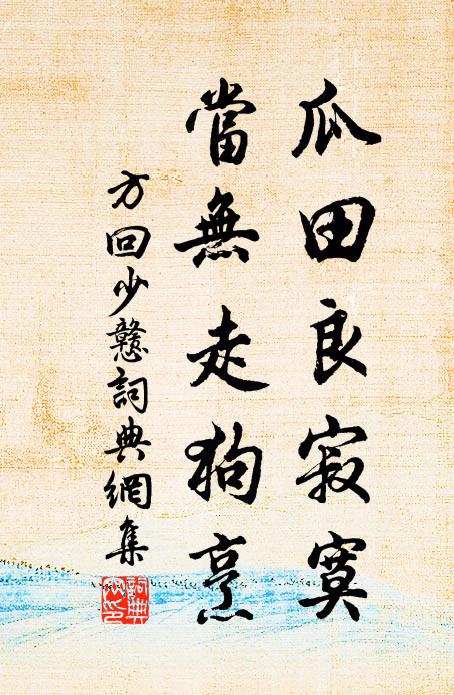 瓜田良寂寞
當無走狗烹
方回少戆詞典網集